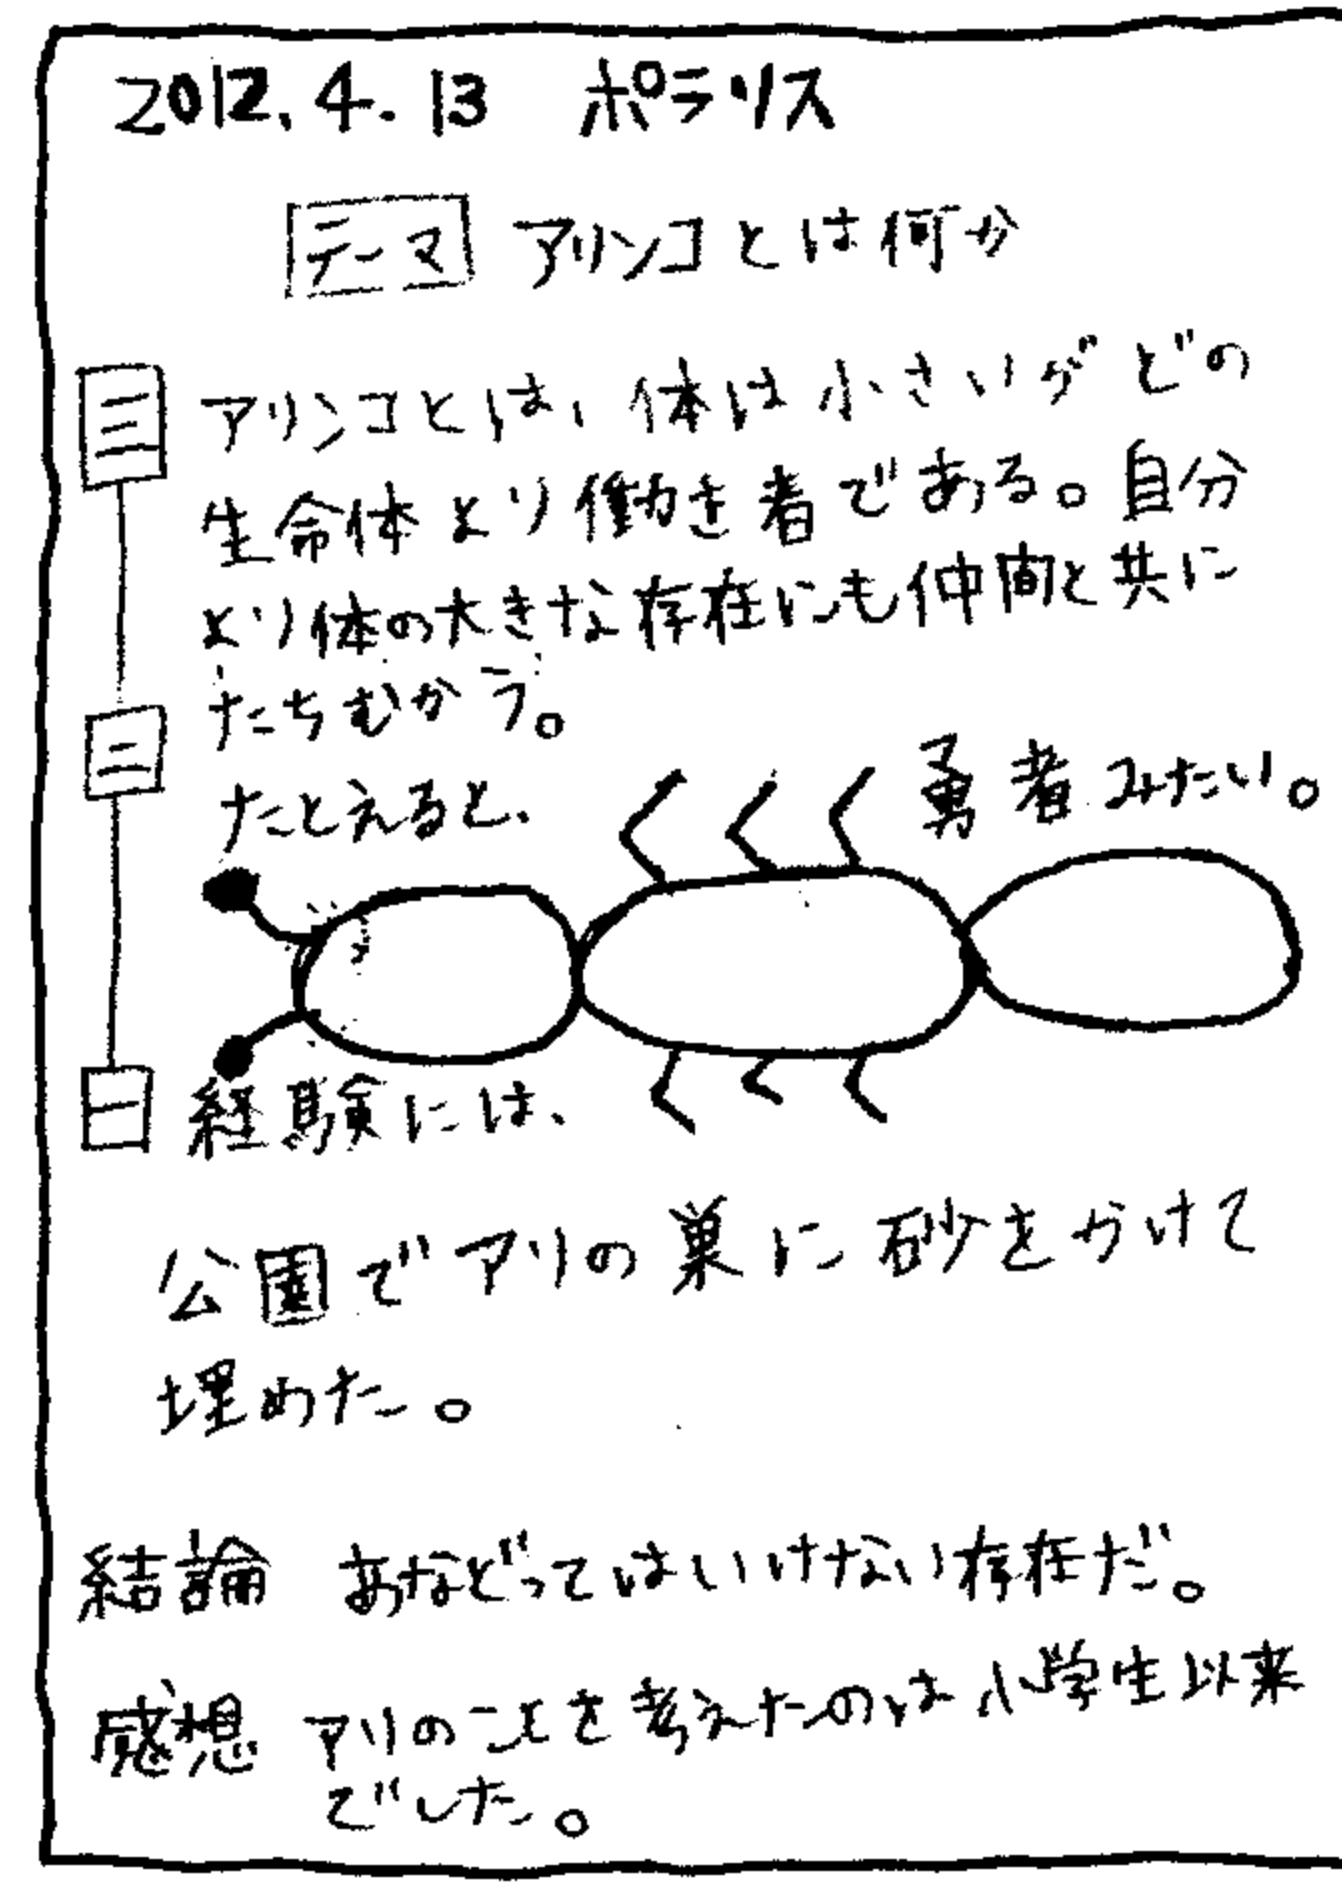 2012.4.13 ポラリス
テーマ アリンコとは何か
三 アリンコとは、体は小さいがどの
生命体より働き者である。自分
より体の大きな存在にも仲間と共に
たちむかう。
二 たとえると、勇者みたい。
一 経験には、
公園でアリの巣に砂をかけて
埋めた。
結論 あなどってはいけない存在だ。
感想 アリのことを考えたのは小学生以来
でした。